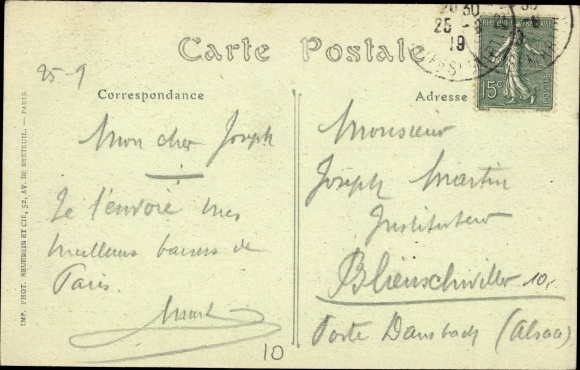 Carte Postale
25-9
Correspondance
Adresse
Mon cher Joseph
Je t'envoie mes
meilleurs baisers de
Paris.
Monsieur
Joseph Martin
Instituteur
Blienschwiller 10.
Poste Dambach (Alsace)
10
IMP. PHOT. NEURDEIN ET CIE, 52, AV. DE BRETEUIL. — PARIS.
30
25
19
15c